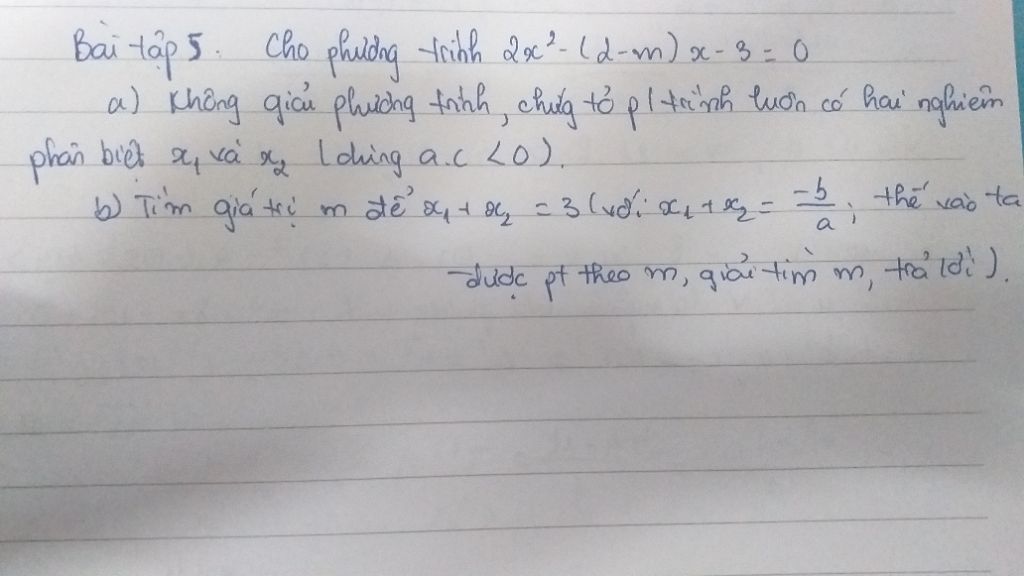 Bài tập 5. Cho phương trình 2x² - (2-m)x - 3 = 0
a) Không giải phương trình, chứg tỏ pt trình luôn có hai nghiệm
phân biệt x₁ và x₂ (dùng a.c < 0).
b) Tìm giá trị m để x₁ + x₂ = 3 (với x₁ + x₂ = -b/a; thế vào ta
được pt theo m, giải tìm m, trả lời).